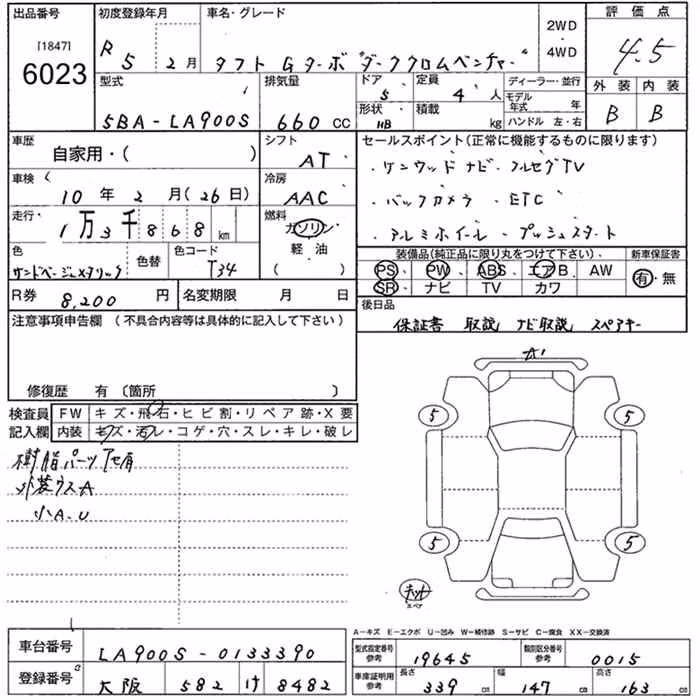 出品番号
[1847]
6023
初度登録年月
R 5 2月
車名・グレード
タフト Gターボ ダーククロムベンチャー
2WD
4WD
評価点
4.5
外装 内装
B B
型式
5BA-LA900S
排気量
660 CC
ドア
5
定員
4 人
形状
HB
積載
kg
ディーラー・並行
モデル年式 年
ハンドル 左・右
車歴
自家用・( )
シフト
AT
セールスポイント(正常に機能するものに限ります)
・ケンウッドナビ・フルセグTV
・バックカメラ ・ETC
・アルミホイール・プッシュスタート
車検
10年2月(26日)
冷房
AAC
走行・
1万3千868km
燃料
ガソリン・
軽油
( )
色
サンドベージュメタリック
色替
色コード
T34
装備品(純正品に限り丸をつけて下さい)
PS・ PW・ ABS・ エアB・ AW
SR・ ナビ・ TV・ カワ
新車保証書
有・無
R券 8,200 円
名変期限 月 日
後日品
保証書 取説 ナビ取説 スペアキー
注意事項申告欄 (不具合内容等は具体的に記入して下さい)
修復歴 有 〔箇所 〕
検査員記入欄
FW キズ・飛石・ヒビ割・リペア跡・X要
内装 キズ・汚レ・コゲ・穴・スレ・キレ・破レ
樹脂パーツアセ有
外装ウスA
小A.U
5
5
5
5
キット
スペア
A-キズ E-エクボ U-凹み W-補修跡 S-サビ C-腐食 XX-交換済
車台番号 LA900S-0133390
登録番号 大阪 582 け 8482
型式指定番号
参考
19645
類別区分番号
参考
0015
車庫証明用
参考
長さ
339 cm
幅
147 cm
高さ
163 cm